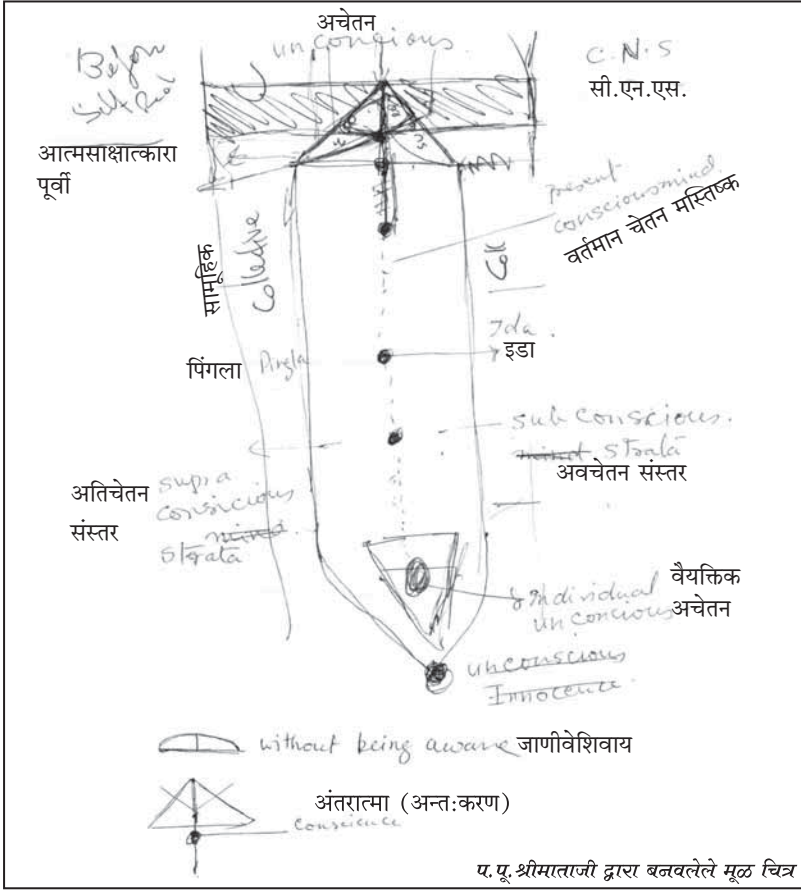 अचेतन
unconscious.
Before
C.N.S
सी.एन.एस.
आत्मसाक्षात्कारा
पूर्वी
present
conscious mind
वर्तमान चेतन मस्तिष्क
सामूहिक
Collective
Coll
पिंगला Pingla
Ida.
इडा
sub conscious.
mind strata
अवचेतन संस्तर
अतिचेतन
संस्तर
supra
conscious
mind
strata
individual
unconcious
वैयक्तिक
अचेतन
unconscious
Innocence.
without being aware जाणीवेशिवाय
अंतरात्मा (अन्त:करण)
conscience
प.पू.श्रीमाताजी द्वारा बनवलेले मूळ चित्र